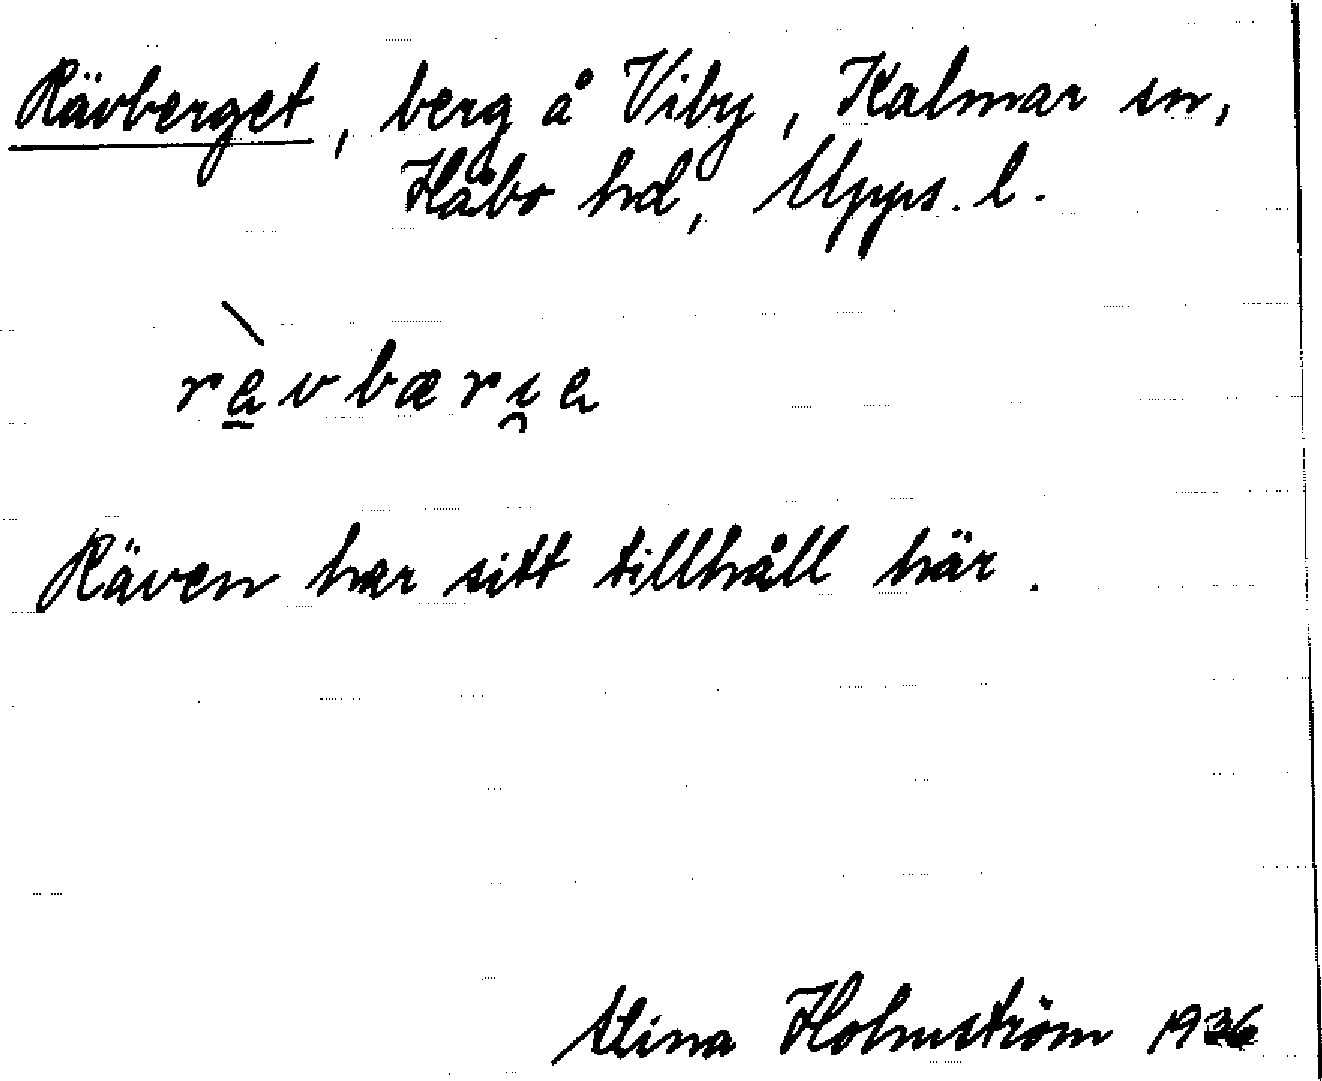 Rävberget, berg å Viby, Kalmar sn,
Håbo hd, Upps. l.
rè̱vbærı̯e
Räven har sitt tillhåll här.
Holmström 1936